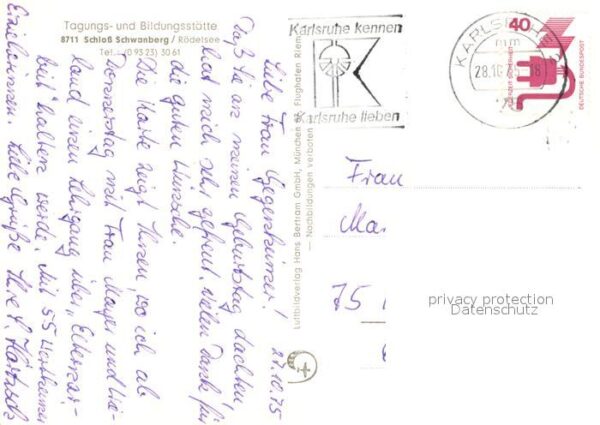 Tagungs- und Bildungsstätte
8711 Schloß Schwanberg / Rödelsee
Tel.: (0 93 23) 30 61
Liebe Frau
Daß Sie an meinen Geburtstag dachten,
hat mich sehr gefreut. Vielen Dank für
die guten Wünsche.
Die Karte zeigt Ihnen, wo ich ab
Donnerstag mit Frau Mayer und
einen Lehrgang über
halten werde. Mit 55
Liebe Grüße Ihre
21.10.75
Luftbildverlag Hans Bertram GmbH, München Flughafen Riem
— Nachbildungen verboten —
Karlsruhe kennen
K
Karlsruhe lieben
KARLSRUHE
28.10.75
40
DEUTSCHE BUNDESPOST
Frau
75
privacy protection
Datenschutz